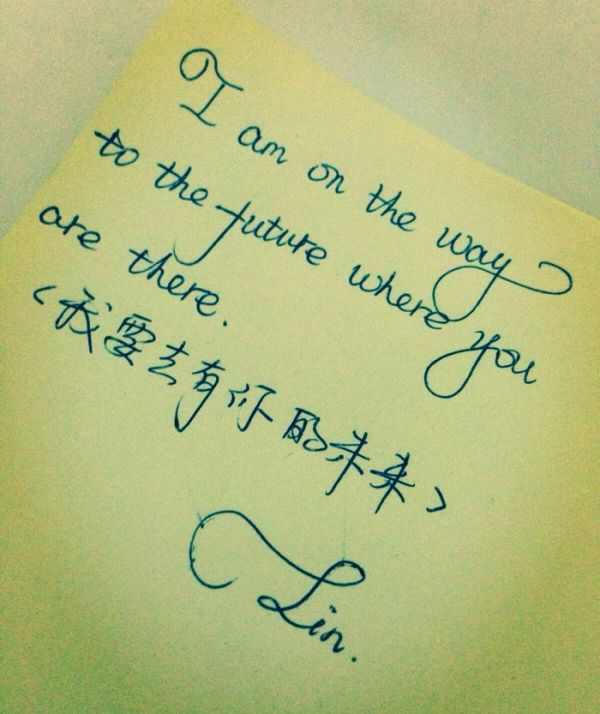 I am on the way
to the future where you
are there.
（我要去有你的未来）
Lin.